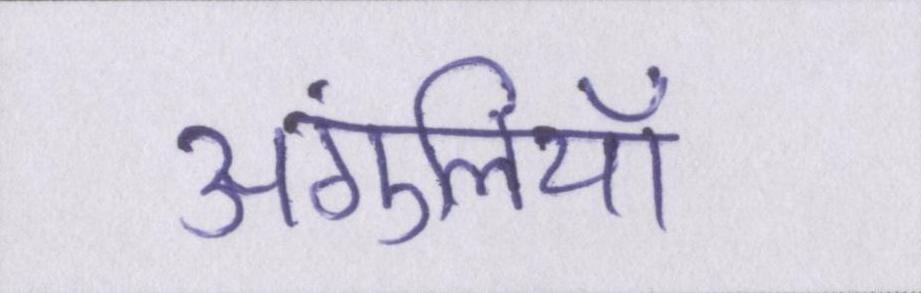 अंगुलियाँ